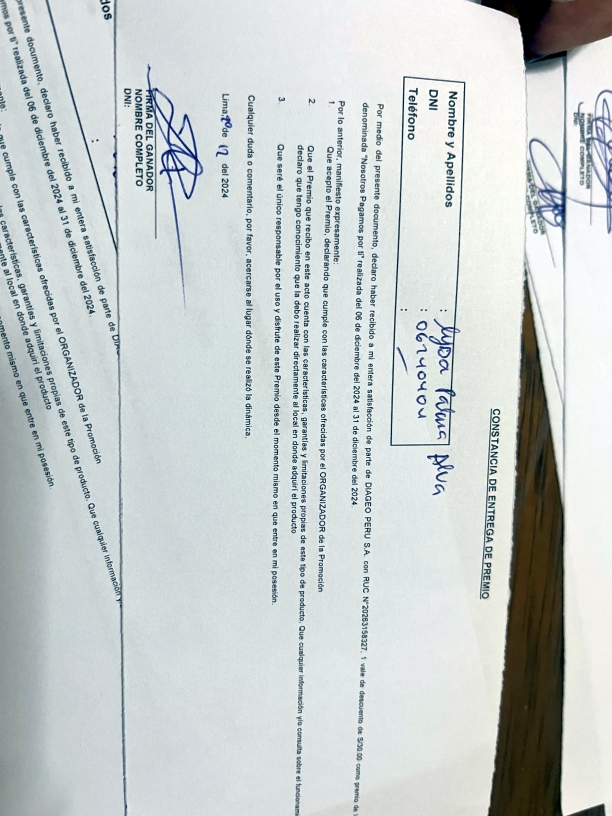 CONSTANCIA DE ENTREGA DE PREMIO
Nombre y Apellidos : Lyda Palma Alva
DNI : 06740404
Teléfono :
Por medio del presente documento, declaro haber recibido a mi entera satisfacción de parte de DIAGEO PERU S.A. con RUC N°20263158327, 1 vale de descuento de S/30.00 como premio de
denominada "Nosotros Pagamos por ti" realizada del 06 de diciembre del 2024 al 31 de diciembre del 2024
Por lo anterior, manifiesto expresamente:
1 Que acepto el Premio, declarando que cumple con las características ofrecidas por el ORGANIZADOR de la Promoción
2. Que el Premio que recibo en este acto cuenta con las características, garantías y limitaciones propias de este tipo de producto. Que cualquier información y/o consulta sobre el
declaro que tengo conocimiento que la debo realizar directamente al local en donde adquirí el producto
3. Que seré el único responsable por el uso y disfrute de este Premio desde el momento mismo en que entre en mi posesión.
Cualquier duda o comentario, por favor, acercarse al lugar dónde se realizó la dinámica.
Lima, de 12 del 2024
FIRMA DEL GANADOR
NOMBRE COMPLETO
DNI:
dos :
presente documento, declaro haber recibido a mi entera satisfacción de parte de
mos por ti" realizada del 06 de diciembre del 2024 al 31 de diciembre del 2024
que cumple con las características ofrecidas por el ORGANIZADOR de la Promoción
las características, garantías y limitaciones propias de este tipo de producto. Que cualquier información
al local en donde adquirí el producto
momento mismo en que entre en mi posesión.
NOMBRE COMPLETO